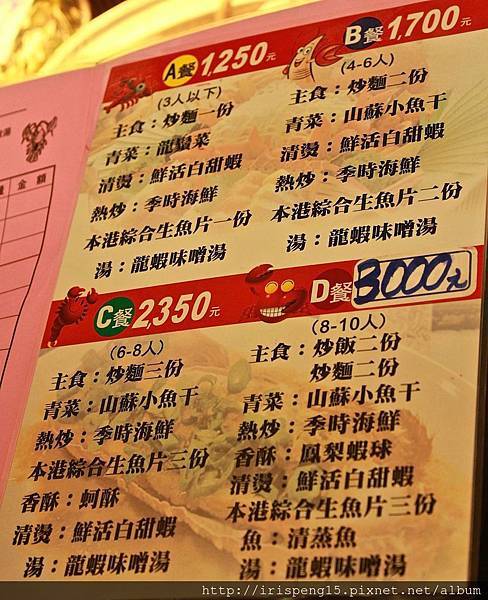 A餐 1,250元
(3人以下)
主食：炒麵一份
青菜：龍鬚菜
清燙：鮮活白甜蝦
熱炒：季時海鮮
本港綜合生魚片一份
湯：龍蝦味噌湯
B餐 1,700元
(4-6人)
主食：炒麵二份
青菜：山蘇小魚干
清燙：鮮活白甜蝦
熱炒：季時海鮮
本港綜合生魚片二份
湯：龍蝦味噌湯
C餐 2,350元
(6-8人)
主食：炒麵三份
青菜：山蘇小魚干
熱炒：季時海鮮
本港綜合生魚片三份
香酥：蚵酥
清燙：鮮活白甜蝦
湯：龍蝦味噌湯
D餐 3000元
(8-10人)
主食：炒飯二份
炒麵二份
青菜：山蘇小魚干
熱炒：季時海鮮
香酥：鳳梨蝦球
清燙：鮮活白甜蝦
本港綜合生魚片三份
魚：清蒸魚
湯：龍蝦味噌湯
金額
http://irispeng15.pixnet.net/album